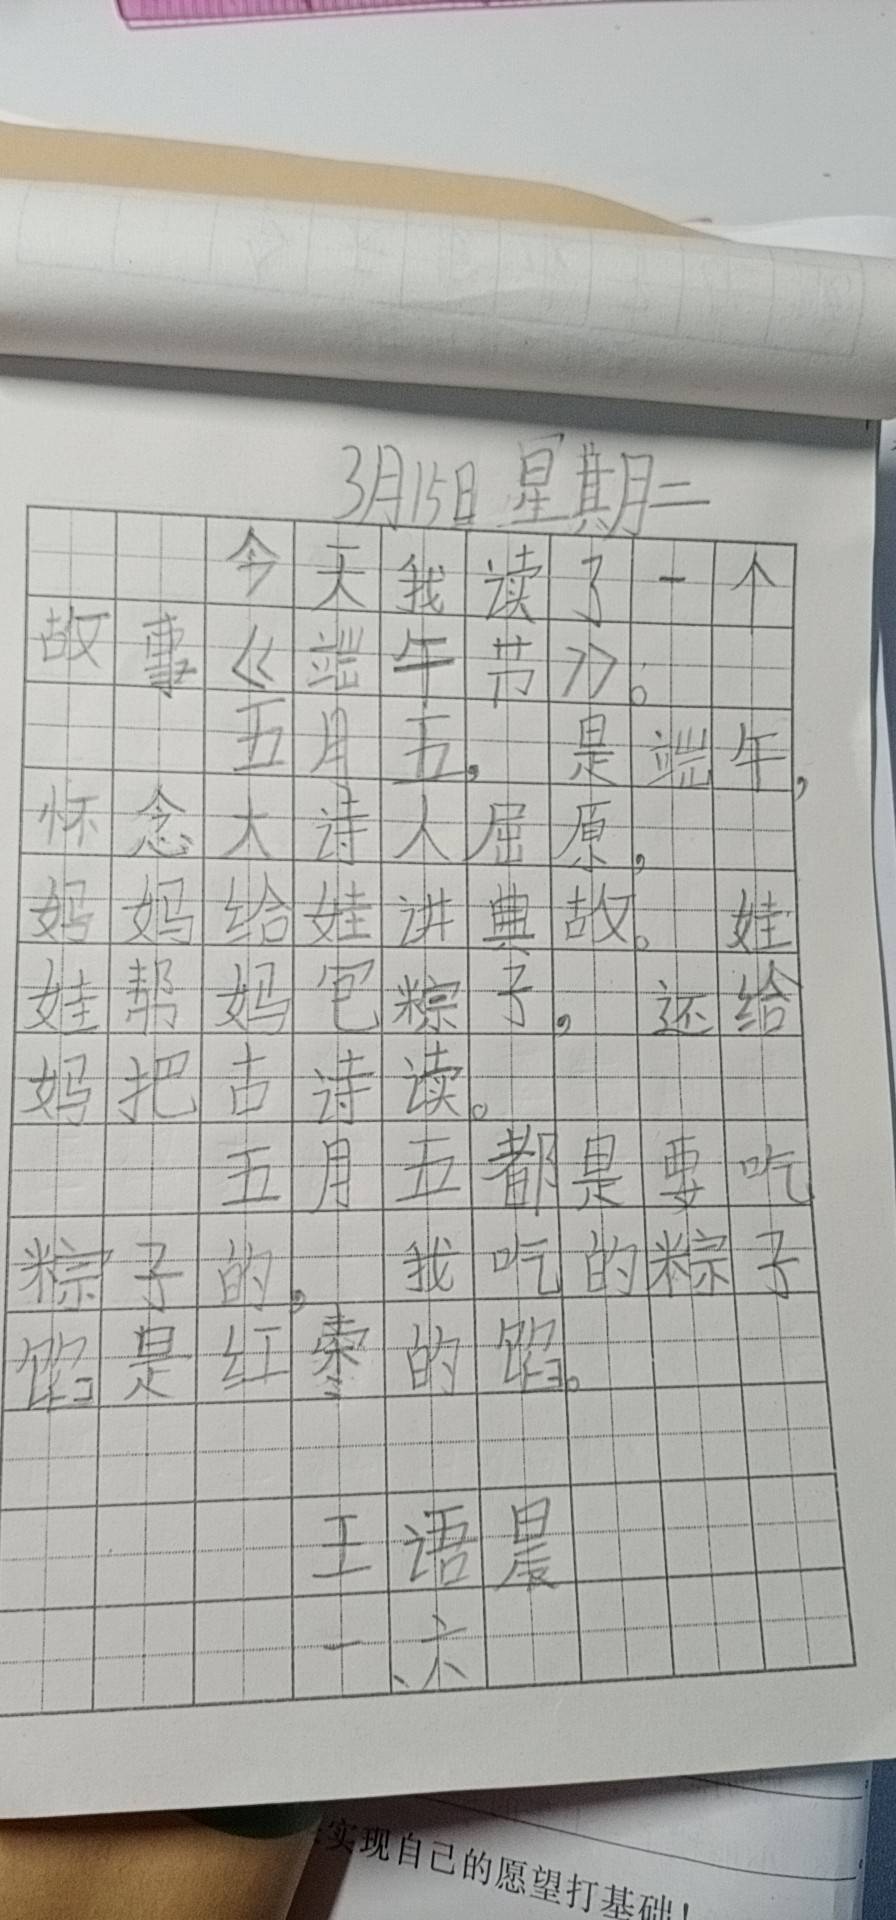 3月15日 星期二
今天我读了一个
故事《端午节》。
五月五,是端午,
怀念大诗人屈原,
妈妈给娃讲典故。娃
娃帮妈包粽子,还给
妈把古诗读。
五月五都是要吃
粽子的,我吃的粽子
馅是红枣的馅。
王语晨
一、六
实现自己的愿望打基础!